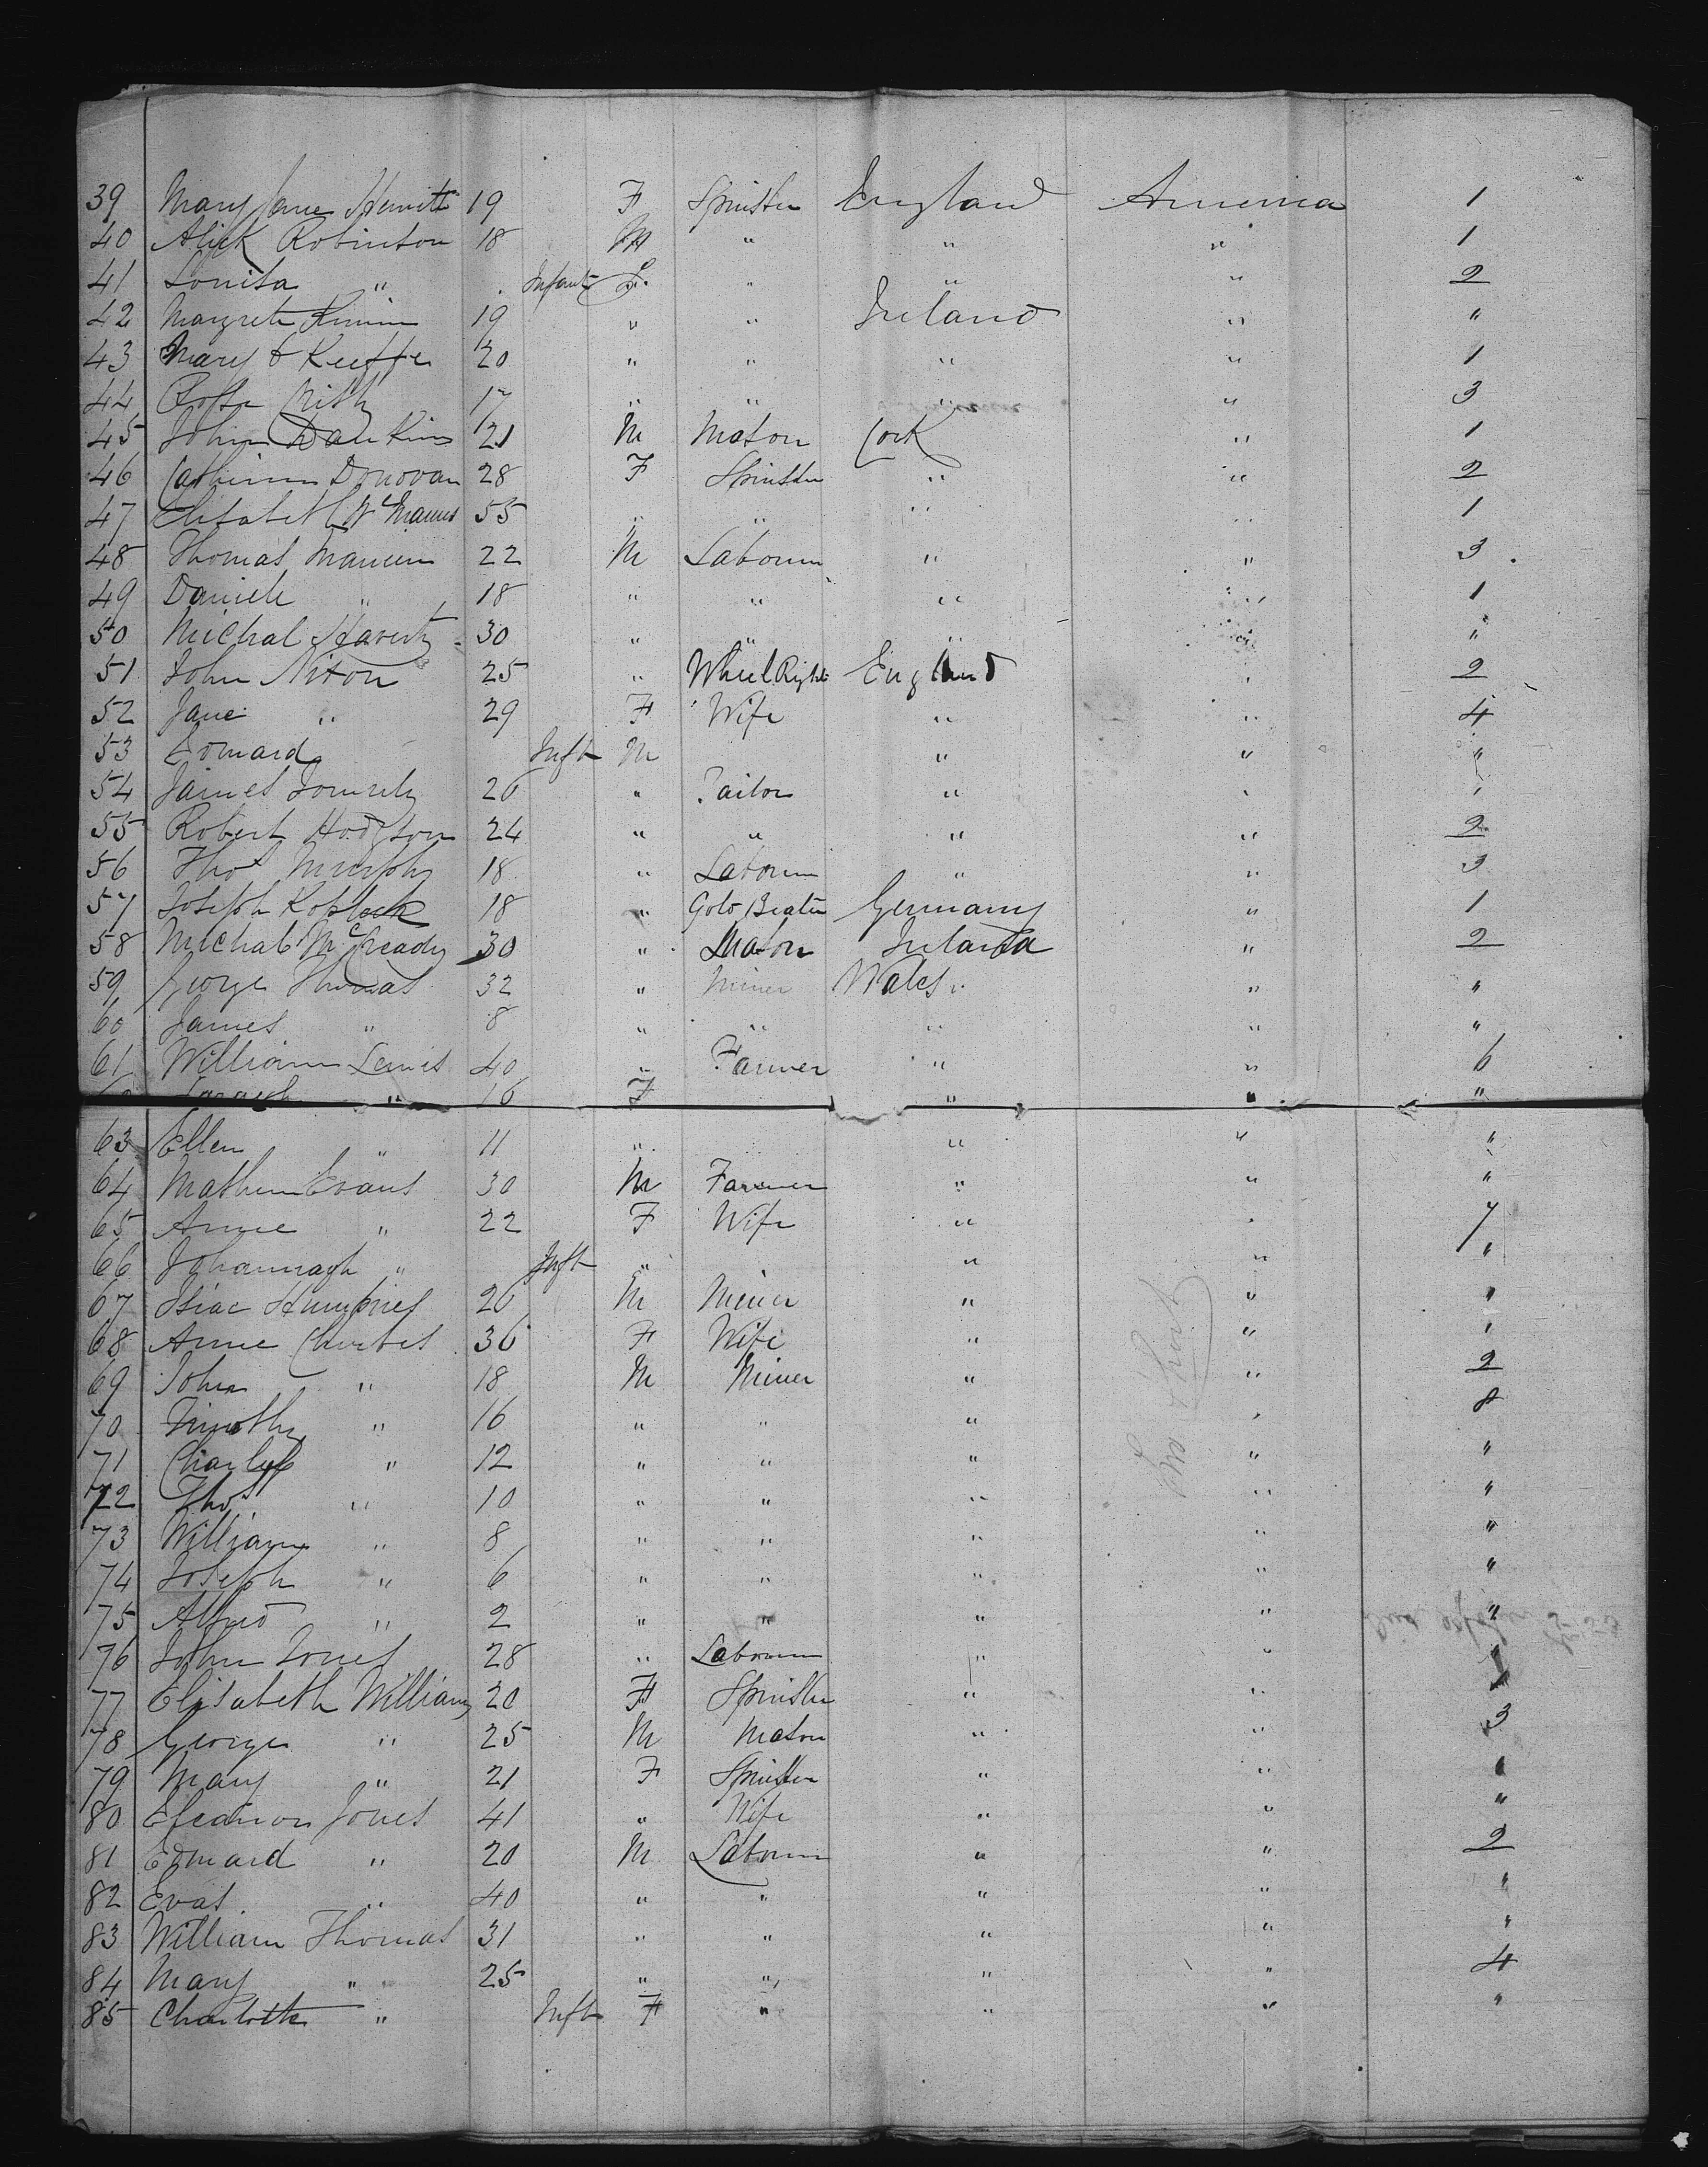 39 Mary Jane Hewitt 19 F Spinster England America 1
40 Alick Robinson 18 M " " " 1
41 Louisa " Infant F. " " " 2
42 Margrete 19 " " Ireland " "
43 Mary O Keeffe 20 " " " " 1
44 17 " " " " 3
45 John Dawkins 21 M Mason Cork " 1
46 Catherine Donovan 28 F Spinster " " 2
47 Elisabeth Mc Manus 55 " " " " 1
48 Thomas 22 M Labourer " " 3
49 Daniele " 18 " " " " 1
50 Michal Haverty 30 " " " " "
51 John Nixon 25 " Wheel Right England " 2
52 Jane " 29 F Wife " " 4
53 Edward Inft M " " "
54 James 26 " Tailor " " "
55 Robert Hodgson 24 " " " " 2
56 Thos Murphy 18 " Labourer " " 3
57 Joseph 18 " Gold Beater Germany " 1
58 Michal McCready 30 " Mason Ireland " 2
59 George Thomas 32 " Miner Wales " "
60 James " 8 " " " " "
61 William Lewis 40 " Farmer " " 6
" 16 F " " "
63 Ellen " 11 " " " "
64 Mathew Evans 30 M Farmer " " "
65 Anne " 22 F Wife " " 7
66 Johannagh " Inft " " " "
67 Isiac Humphries 26 M Miner " " "
68 Anne 36 F Wife " " "
69 John " 18 M Miner " " 2
70 Timothy " 16 " " " " 8
71 Charles " 12 " " " " "
72 Thos " 10 " " " " "
73 William " 8 " " " " "
74 Joseph " 6 " " " " "
75 Alfred " 2 " " " " "
76 John Jones 28 " Labourer " " 1
77 Elisabeth Williams 20 F Spinster " "
78 George " 25 M Mason " " 3
79 Mary " 21 F Spinster " " 1
80 Eleanor Jones 41 " Wife " " "
81 Edward " 20 M Labourer " " 2
82 Evas " 40 " " " " "
83 William Thomas 31 " " " " "
84 Mary " 25 " " " " 4
85 Charlotte " Inft F " " " "